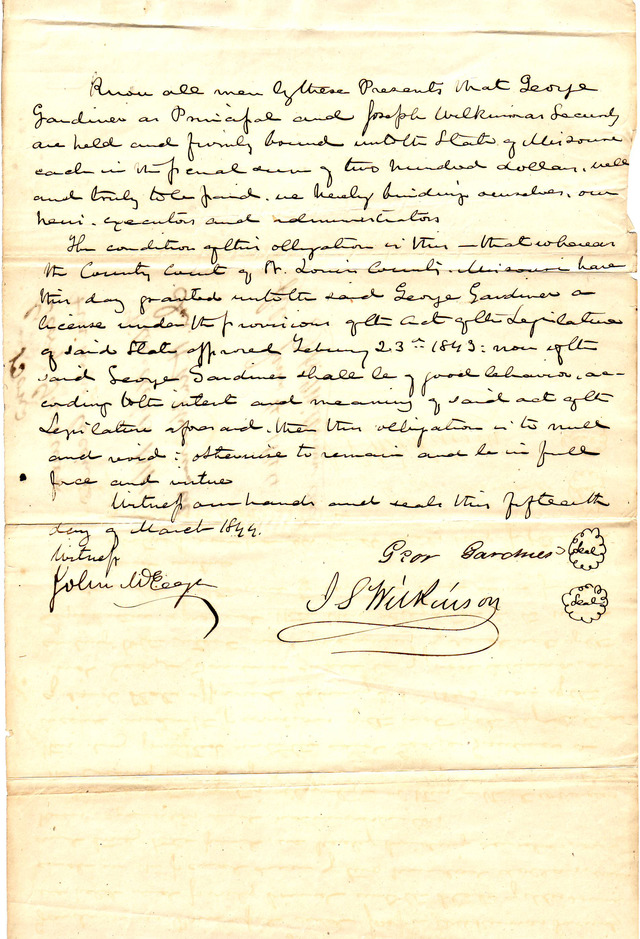 Know all men by these Presents that George
Gardiner as Principal and Joseph Wilkinson as Security
are held and firmly bound unto the State of Missouri
each in the penal sum of two hundred dollars, well
and truly to be paid. we hereby binding ourselves, our
heirs. executors and administrators
The condition of this obligation is this — that whereas
the County Court of St. Louis County. Missouri have
this day granted unto the said George Gardiner a
license under the provisions of the act of the Legislature
of said State approved February 23rd 1843: now if the
said George Gardiner shall be of good behavior, ac-
cording to the intent and meaning of said act of the
Legislature aforesaid. then this obligation is to null
and void: otherwise to remain and be in full
force and virtue
Witness our hands and seals this fifteenth
day of March 1844.
Witness
Geor Gardiner Seal
John
J S Wilkinson Seal